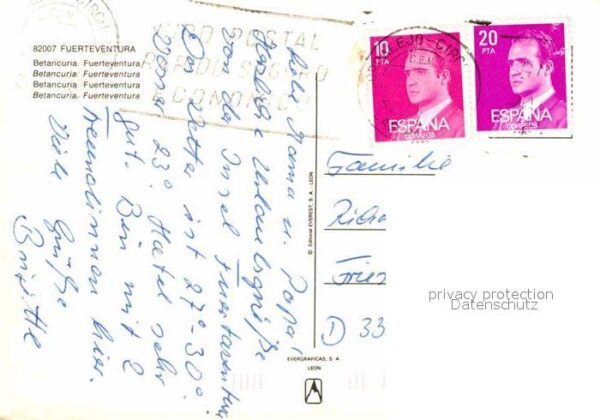 82007 FUERTEVENTURA
Betancuria. Fuerteventura
Betancuria. Fuerteventura
Betancuria. Fuerteventura
Betancuria. Fuerteventura
POSTAL
10
PTA
ESPAÑA
CORREOS
20
PTA
ESPAÑA
CORREOS
Liebe Mama u. Papa!
Herzliche Urlaubsgrüße
von der Insel Fuerteventura
Das Wetter ist 27°-30°
23° Hotel sehr
gut. Bin mit 2
hier.
Viele Grüße
Brigitte
© Editorial EVEREST, S. A. - LEON
EVERGRAFICAS, S. A.
LEON
Familie
D 33
privacy protection
Datenschutz